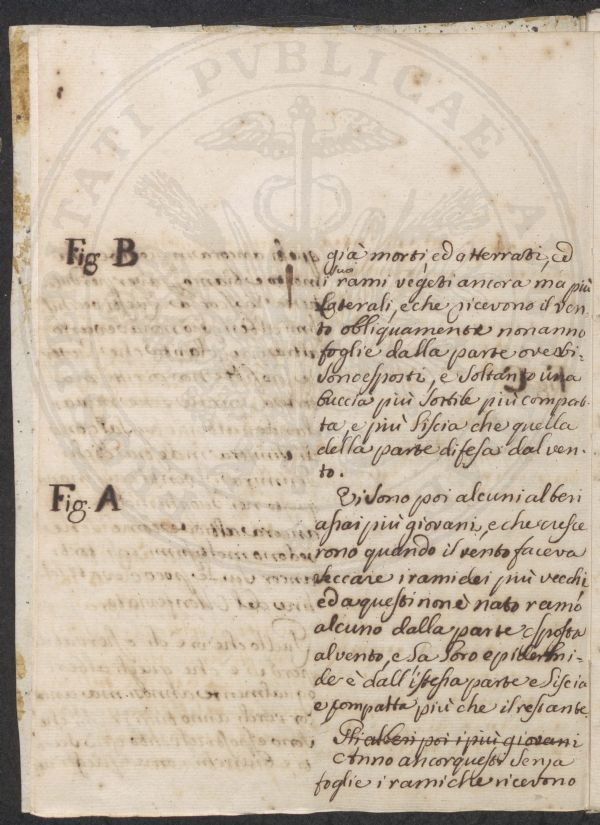 Fig B
già morti, ed atterrati, ed
i suoi rami vegeti ancora ma più
laterali, e che ricevono il ven-
to obliquamente non anno
foglie dalla parte ove vi
son esposti, e soltanto una
buccia più sottile più compat-
ta, e più liscia che quella
della parte difesa dal ven-
to.
Fig. A
Vi sono poi alcuni alberi
assai più giovani, e che cresce
rono quando il vento faceva
seccare i rami dei più vecchi
ed a questi non è nato ramo
alcuno dalla parte esposta
al vento, e la loro epidermi-
de è dall'istessa parte e liscia
e compatta più che il restante.
alberi poi i più giovani
Anno ancor questi senza
foglie i rami che ricevono